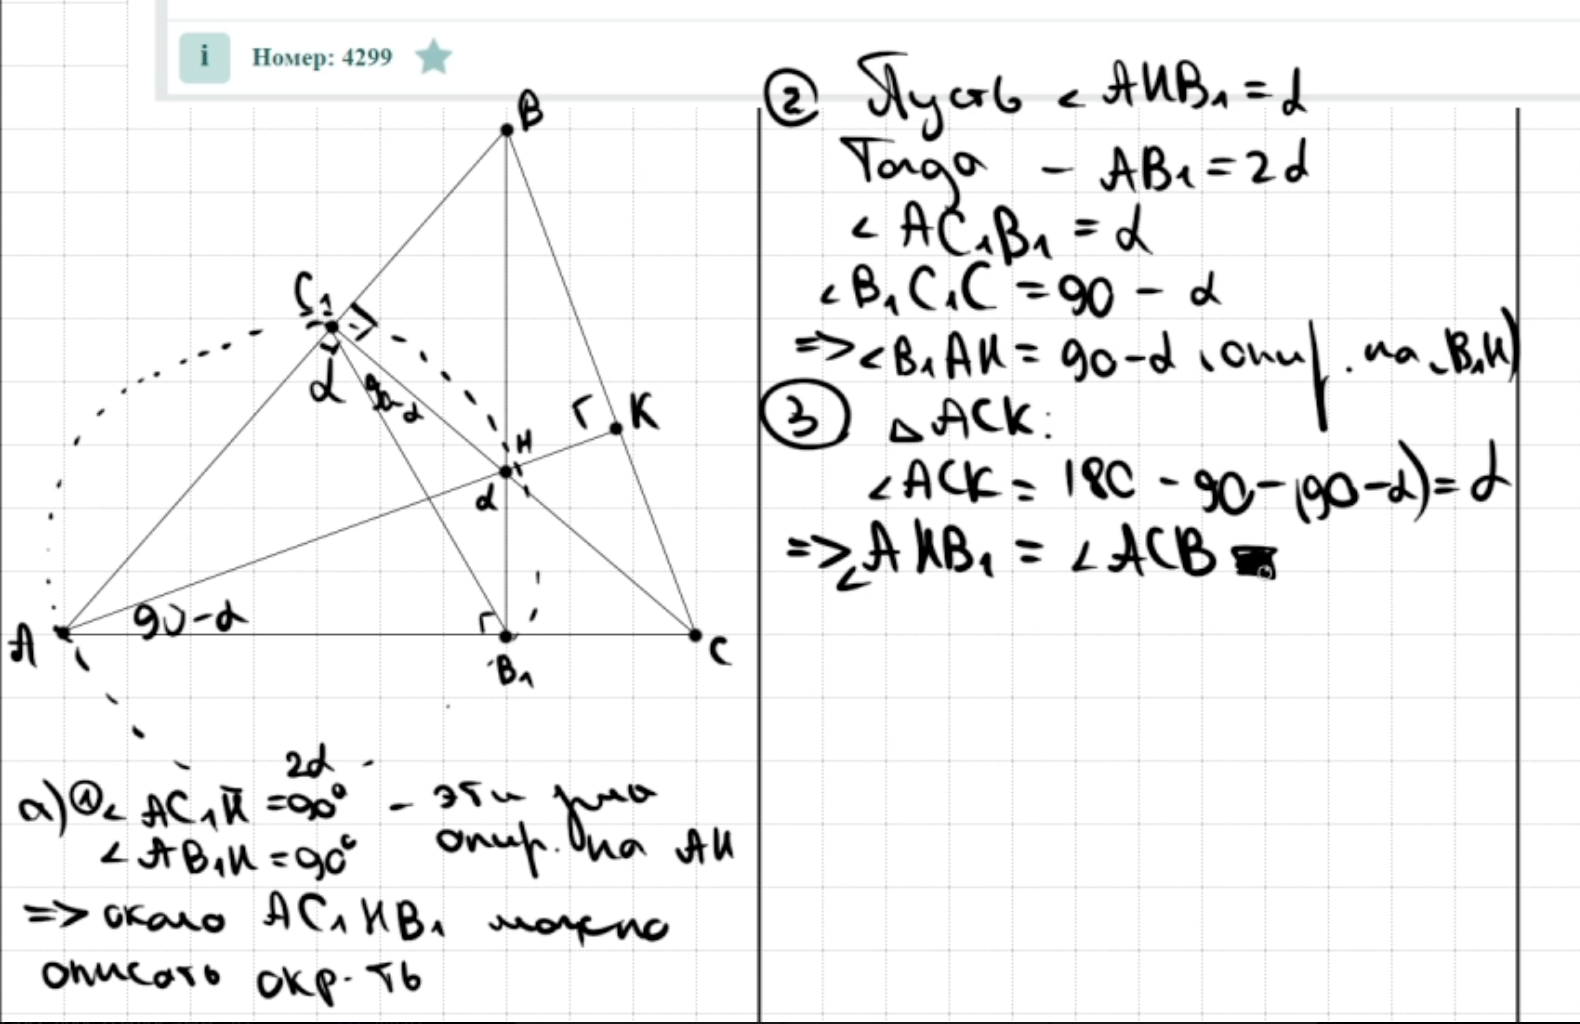 i Номер: 4299
B
C₁
α
90-α
H
Г K
α
A
90-α
Г
B₁
C
2α
а) ① ∠ AC₁H = 90° - эти углы
∠ AB₁H = 90° опир. на AH
=> около AC₁HB₁ можно
описать окр-ть
② Пусть ∠ AHB₁ = α
Тогда - AB₁ = 2α
∠ AC₁B₁ = α
∠ B₁C₁C = 90 - α
=> ∠ B₁AH = 90-α (опир. на ◡B₁H)
③ △ ACK:
∠ACK = 180 - 90 - (90-α) = α
=> ∠ AHB₁ = ∠ ACB